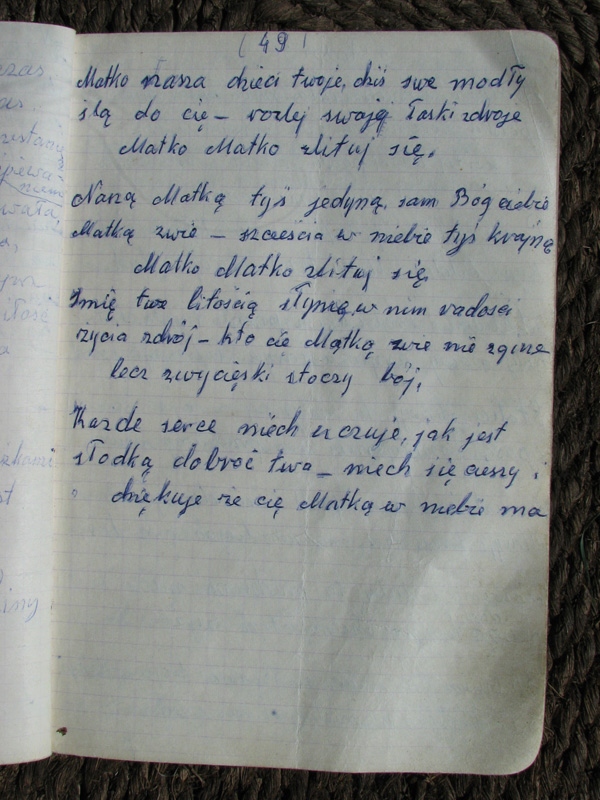 (49)
Matko nasza dzieci twoje, dziś swe modły
ślą do cię – wzlej swojej łaski zdroje
Matko Matko zlituj się.
Naszą Matką tyś jedyną, sam Bóg ciebie
Matką zwie – szczescia w niebie tyś krajną
Matko Matko zlituj się
Imię twe litością słynię, w nim radosci
życia zdrój – kto cię Mątką zwie nie zginie
lecz zwycięski stoczy bój,
Każde serce niech uczuje, jak jest
słodką dobroć twa – niech się cieszy i
dziękuje że cię Matką w niebie ma